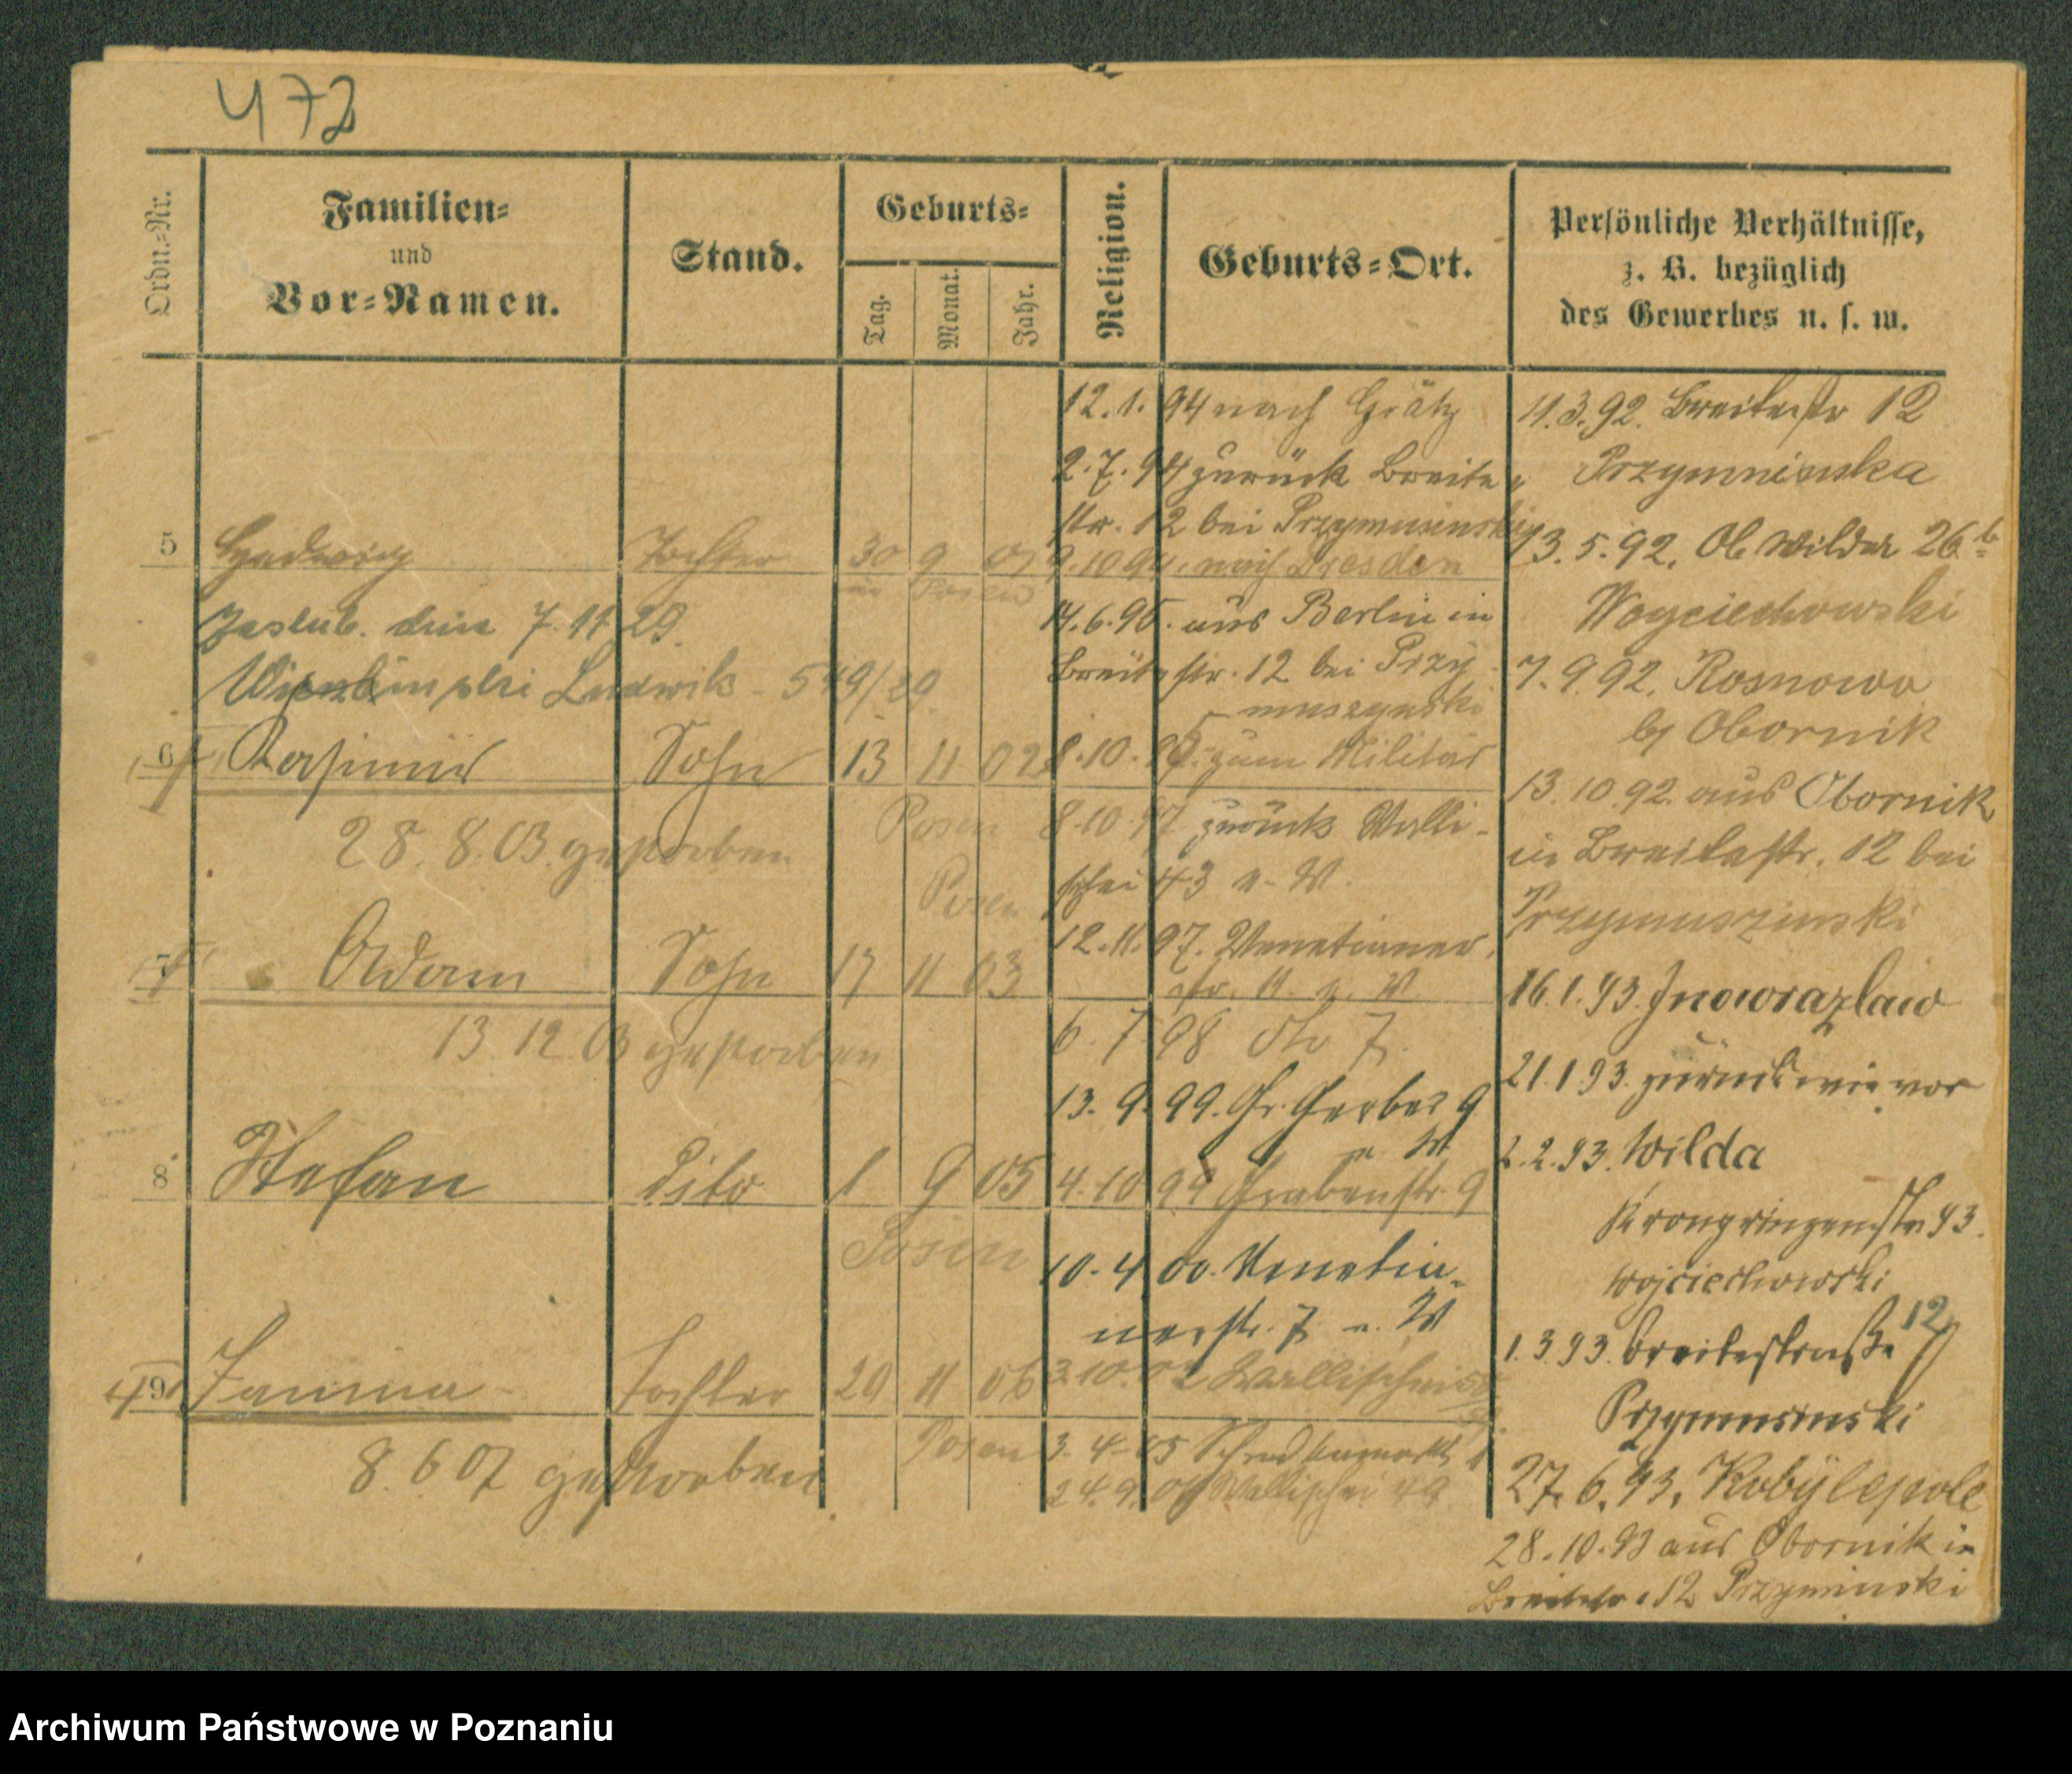 472
Ordn.-Nr.
Familien-
und
Vor-Namen.
Stand.
Geburts-
Tag.
Monat.
Jahr.
Religion.
Geburts-Ort.
Persönliche Verhältnisse,
z. B. bezüglich
des Gewerbes u. s. w.
5 Hedwig Tochter 30 9 01
in Posen
Zaslub. dnia 7.11.29.
Ludwik - 549/29
6 Kasimir Sohn 13 11 02
Posen
28.8.03. gestorben
Posen
7 Adam Sohn 17 11 03
13.12.03 gestorben
8 Stefan dito 1 9 05
Posen
9 Janina Tochter 29 11 06
Posen
8.6.07 gestorben
12.1.94 nach Grätz
2.7.94 zurück Breite-
str. 12 bei Przymusinski
9.10.94. nach Dresden
14.6.95. aus Berlin in
Breitestr. 12 bei Przy-
muszynski
8.10.95. zum Militär
8.10.97 zurück Walli-
schei 43 u. W.
12.11.97. Venetianer-
str. 11. u. W.
6.7.98 dto 7.
13.9.99. Gr. Gerber 9
u. W
4.10.99 Grabenstr. 9
10.4.00. Venetia-
nerstr. 7 u. W
3.10.02 Wallischei
3.4.05
24.9. Wallischei 49
11.3.92. Breitestr 12
Przymuinska
13.5.92. Ob. Wilda 26b
Woyciechowski
7.9.92. Rosnowo
b/ Obornik
13.10.92. aus Obornik
in Breitestr. 12 bei
Przymuszinski
16.1.93. Inowrazlaw
21.1.93. zurück wie vor
2.2.93. Wilda
Kronprinzenstr. 93.
Wojciechowski
1.3.93. Breitestraße 12
Przymusinski
27.6.93. Kobylepole
28.10.93 aus Obornik in
Breitestr. 12 Przyminski
Archiwum Państwowe w Poznaniu